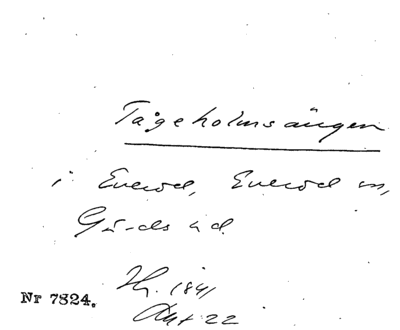 Tågeholmsängen
i Everöd, Everöd sn,
Gärds hd.
Hz. 1841
Akt 22
Nr 7824.